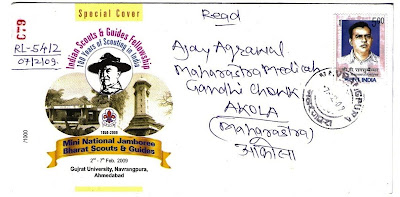 Special Cover
Regd
RL-54/2
07/2/09.
Indian Scouts & Guides Fellowship
100 Years of Scouting in India
1959-2009
Mini National Jamboree
Bharat Scouts & Guides
2nd - 7th Feb. 2009
Gujrat University, Navrangpura,
Ahmedabad
/1000
Ajay Agrawal
Maharastra Medical
Gandhi Chowk
AKOLA
(Maharastra)
अकोला
500
INDIA